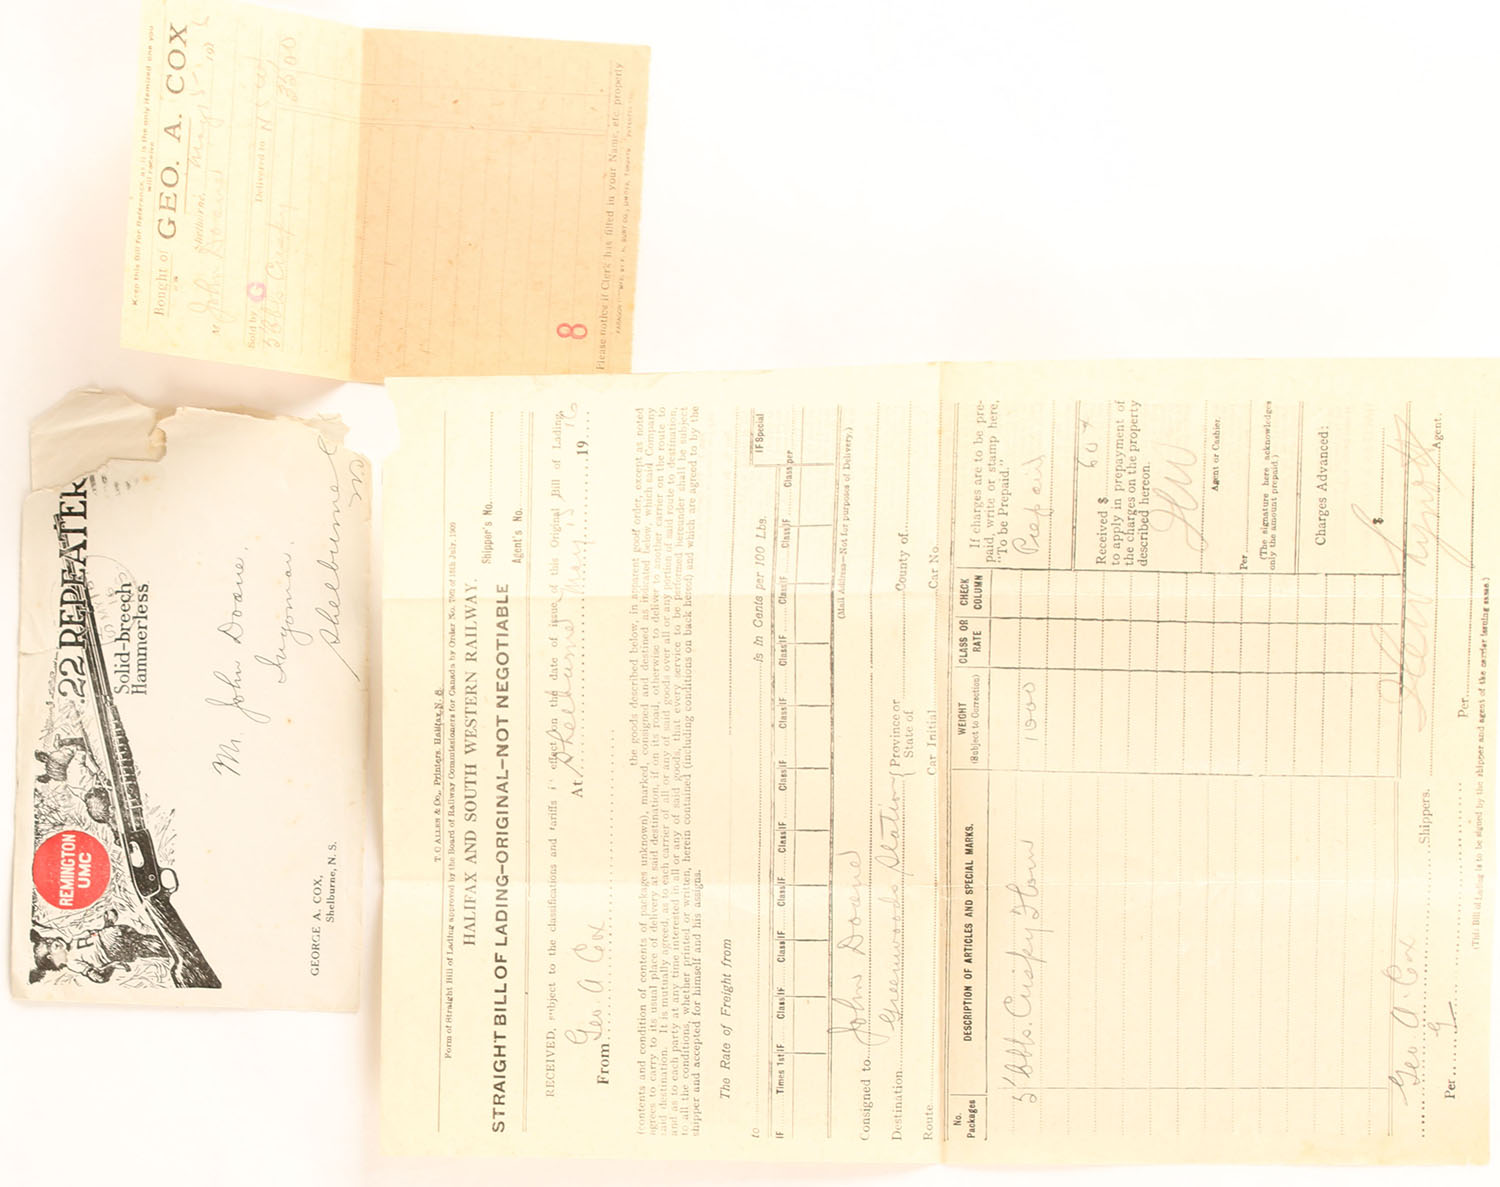 Keep this Bill for Reference, as it is the only itemized one you
will receive
Bought of GEO. A. COX
Shelburne, May 5 1916
M John Doane
Sold by G Delivered to
5 Bbls Crispy 33 00
8
Please notice if Clerk has filled in your Name, etc. properly
.22 REPEATER
Solid-breech
Hammerless
REMINGTON
UMC
Mr. John Doane,
Ingomar.
Shelburne Co
NS
GEORGE A. COX,
Shelburne, N. S.
T C ALLEN & Co., Printers, Halifax, N. S.
Form of Straight Bill of Lading approved by the Board of Railway Commissioners for Canada by Order No. 7562 of 15th July, 1909
HALIFAX AND SOUTH WESTERN RAILWAY.
Shipper's No.
STRAIGHT BILL OF LADING—ORIGINAL—NOT NEGOTIABLE
Agent's No.
RECEIVED, subject to the classifications and tariffs in effect on the date of issue of this Original Bill of Lading,
At Shelburne May 5 1916
From Geo. A Cox
the goods described below, in apparent good order, except as noted
(contents and condition of contents of packages unknown), marked, consigned and destined as indicated below, which said Company
agrees to carry to its usual place of delivery at said destination, if on its road, otherwise to deliver to another carrier on the route to
said destination. It is mutually agreed, as to each carrier of all or any of said goods over all or any portion of said route to destination,
and as to each party at any time interested in all or any of said goods, that every service to be performed hereunder shall be subject
to all the conditions, whether printed or written, herein contained (including conditions on back hereof) and which are agreed to by the
shipper and accepted for himself and his assigns.
The Rate of Freight from
to is in Cents per 100 Lbs.
IF Special
IF Times 1st IF Class IF Class IF Class IF Class IF Class IF Class IF Class IF Class IF Class IF Class per
(Mail Address—Not for purposes of Delivery.)
Consigned to John Doane
Destination Greenwoods Station Province or State of County of
Route Car Initial Car No.
No. Packages
DESCRIPTION OF ARTICLES AND SPECIAL MARKS.
WEIGHT (Subject to Correction)
CLASS OR RATE
CHECK COLUMN
5 Bbls. Crispy Flour 1000
If charges are to be pre-
paid, write or stamp here,
"To be Prepaid."
Prepaid
Received $ 60
to apply in prepayment of
the charges on the property
described hereon.
Agent or Cashier.
Per
(The signature here acknowledges
only the amount prepaid.)
Charges Advanced:
$
Geo. A. Cox Shippers.
Agent.
Per G
Per
(This Bill of Lading is to be signed by the shipper and agent of the carrier issuing same.)